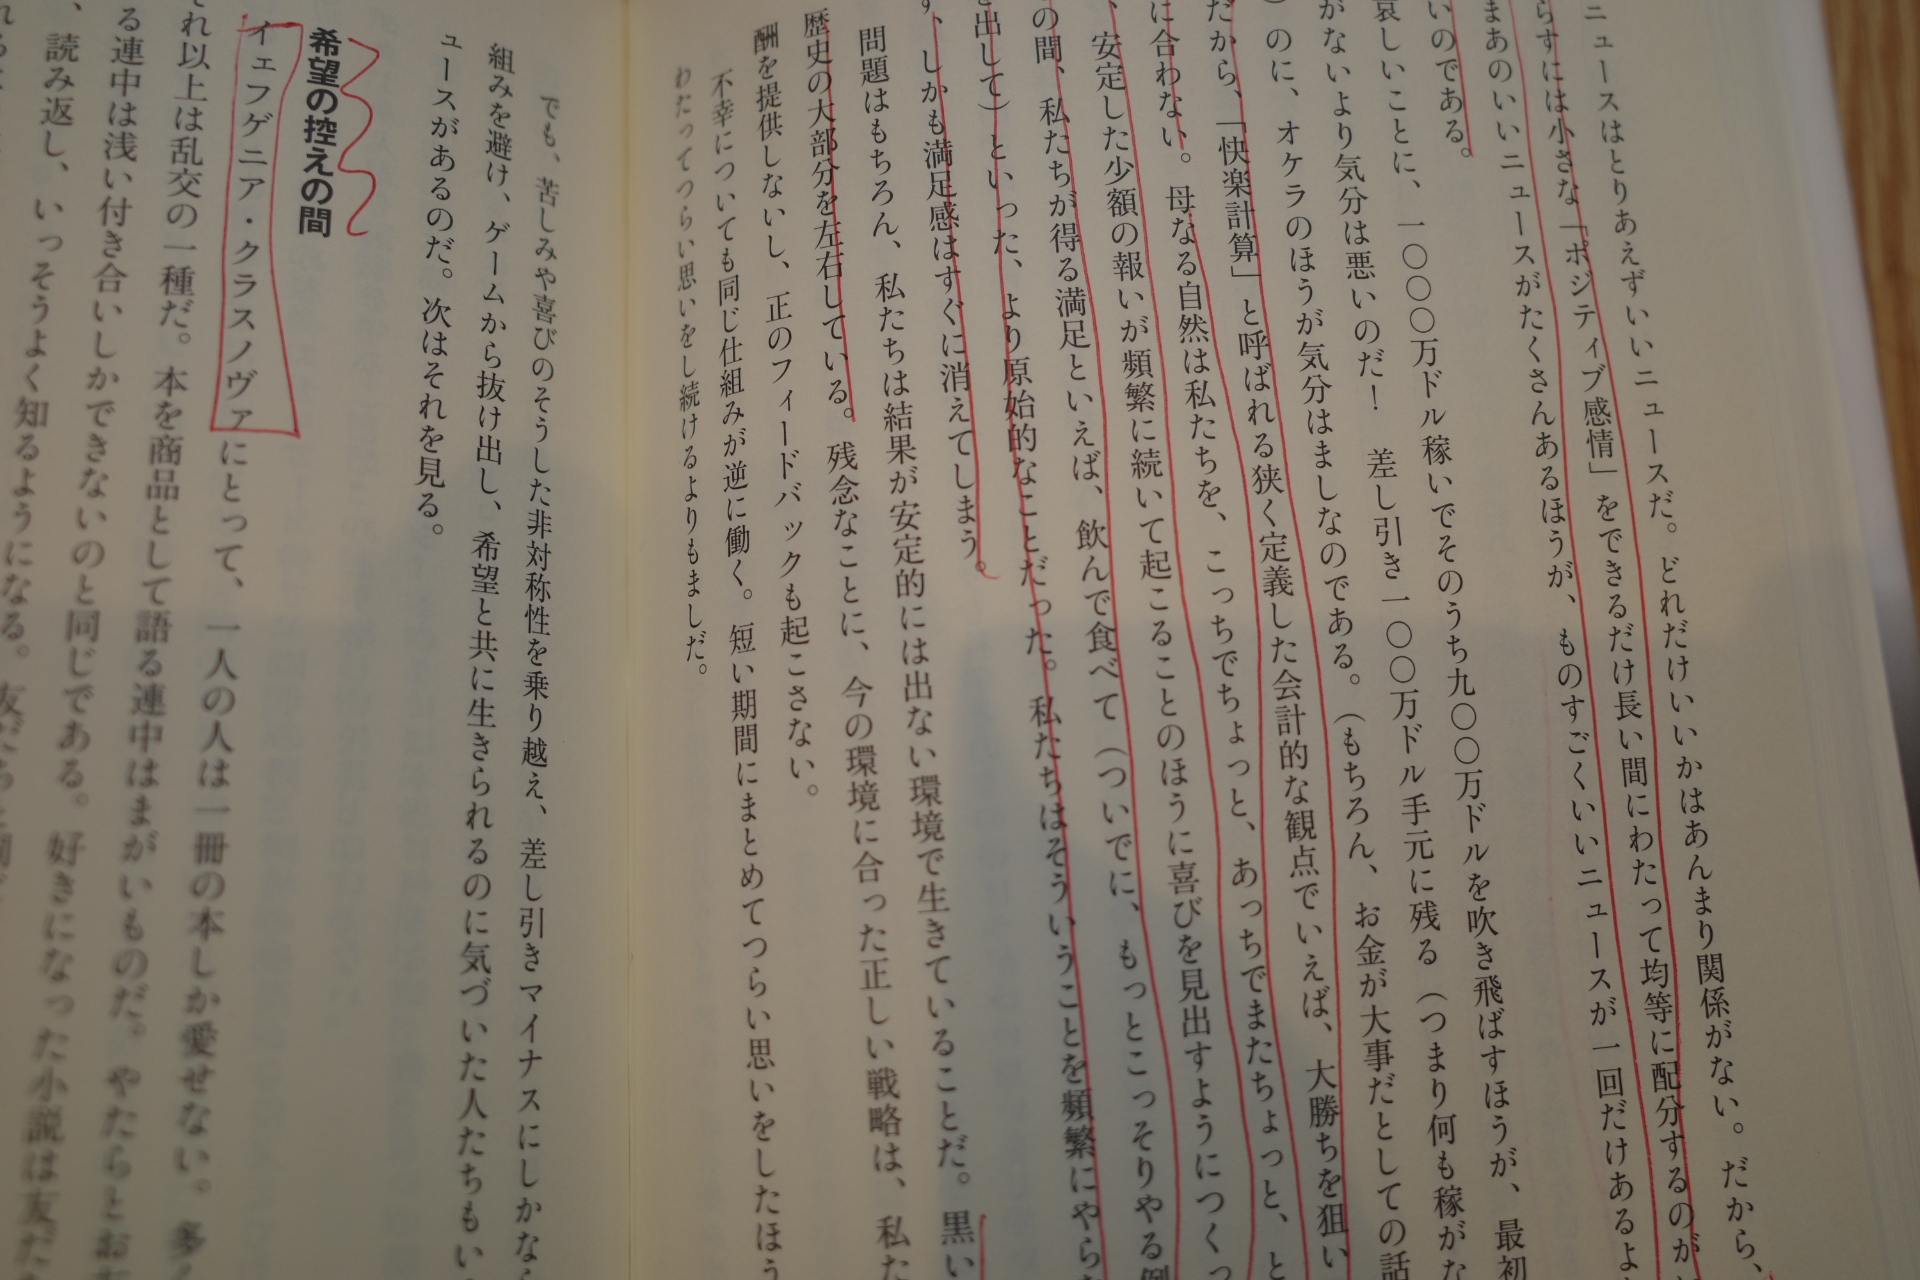 ニュースはとりあえずいいニュースだ。どれだけいいかはあんまり関係がない。だから、
らすには小さな「ポジティブ感情」をできるだけ長い間にわたって均等に配分するのが
まあのいいニュースがたくさんあるほうが、ものすごくいいニュースが一回だけあるよ
いのである。
哀しいことに、一〇〇〇万ドル稼いでそのうち九〇〇万ドルを吹き飛ばすほうが、最初
がないより気分は悪いのだ！　差し引き一〇〇万ドル手元に残る（つまり何も稼がな
）のに、オケラのほうが気分はましなのである。（もちろん、お金が大事だとしての話
だから、「快楽計算」と呼ばれる狭く定義した会計的な観点でいえば、大勝ちを狙い
に合わない。母なる自然は私たちを、こっちでちょっと、あっちでまたちょっと、と
、安定した少額の報いが頻繁に続いて起こることのほうに喜びを見出すようにつくっ
の間、私たちが得る満足といえば、飲んで食べて（ついでに、もっとこっそりやる例
を出して）といった、より原始的なことだった。私たちはそういうことを頻繁にやら
す、しかも満足感はすぐに消えてしまう。
問題はもちろん、私たちは結果が安定的には出ない環境で生きていることだ。黒い
歴史の大部分を左右している。残念なことに、今の環境に合った正しい戦略は、私た
酬を提供しないし、正のフィードバックも起こさない。
不幸についても同じ仕組みが逆に働く。短い期間にまとめてつらい思いをしたほう
わたってつらい思いをし続けるよりもましだ。
でも、苦しみや喜びのそうした非対称性を乗り越え、差し引きマイナスにしかなら
組みを避け、ゲームから抜け出し、希望と共に生きられるのに気づいた人たちもい
ュースがあるのだ。次はそれを見る。
希望の控えの間
イェフゲニア・クラスノヴァにとって、一人の人は一冊の本しか愛せない。多く
れ以上は乱交の一種だ。本を商品として語る連中はまがいものだ。やたらとお
る連中は浅い付き合いしかできないのと同じである。好きになった小説は友だ
、読み返し、いっそうよく知るようになる。友だちと